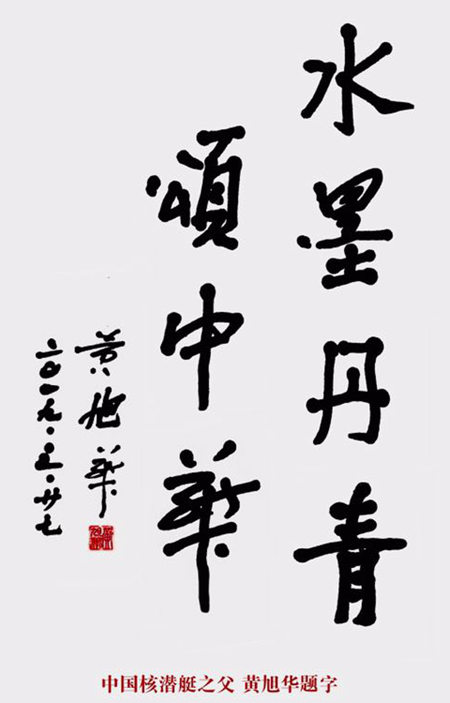 水墨丹青
頌中華
黄旭華
二〇一九.五.廿七
中国核潜艇之父 黄旭华题字